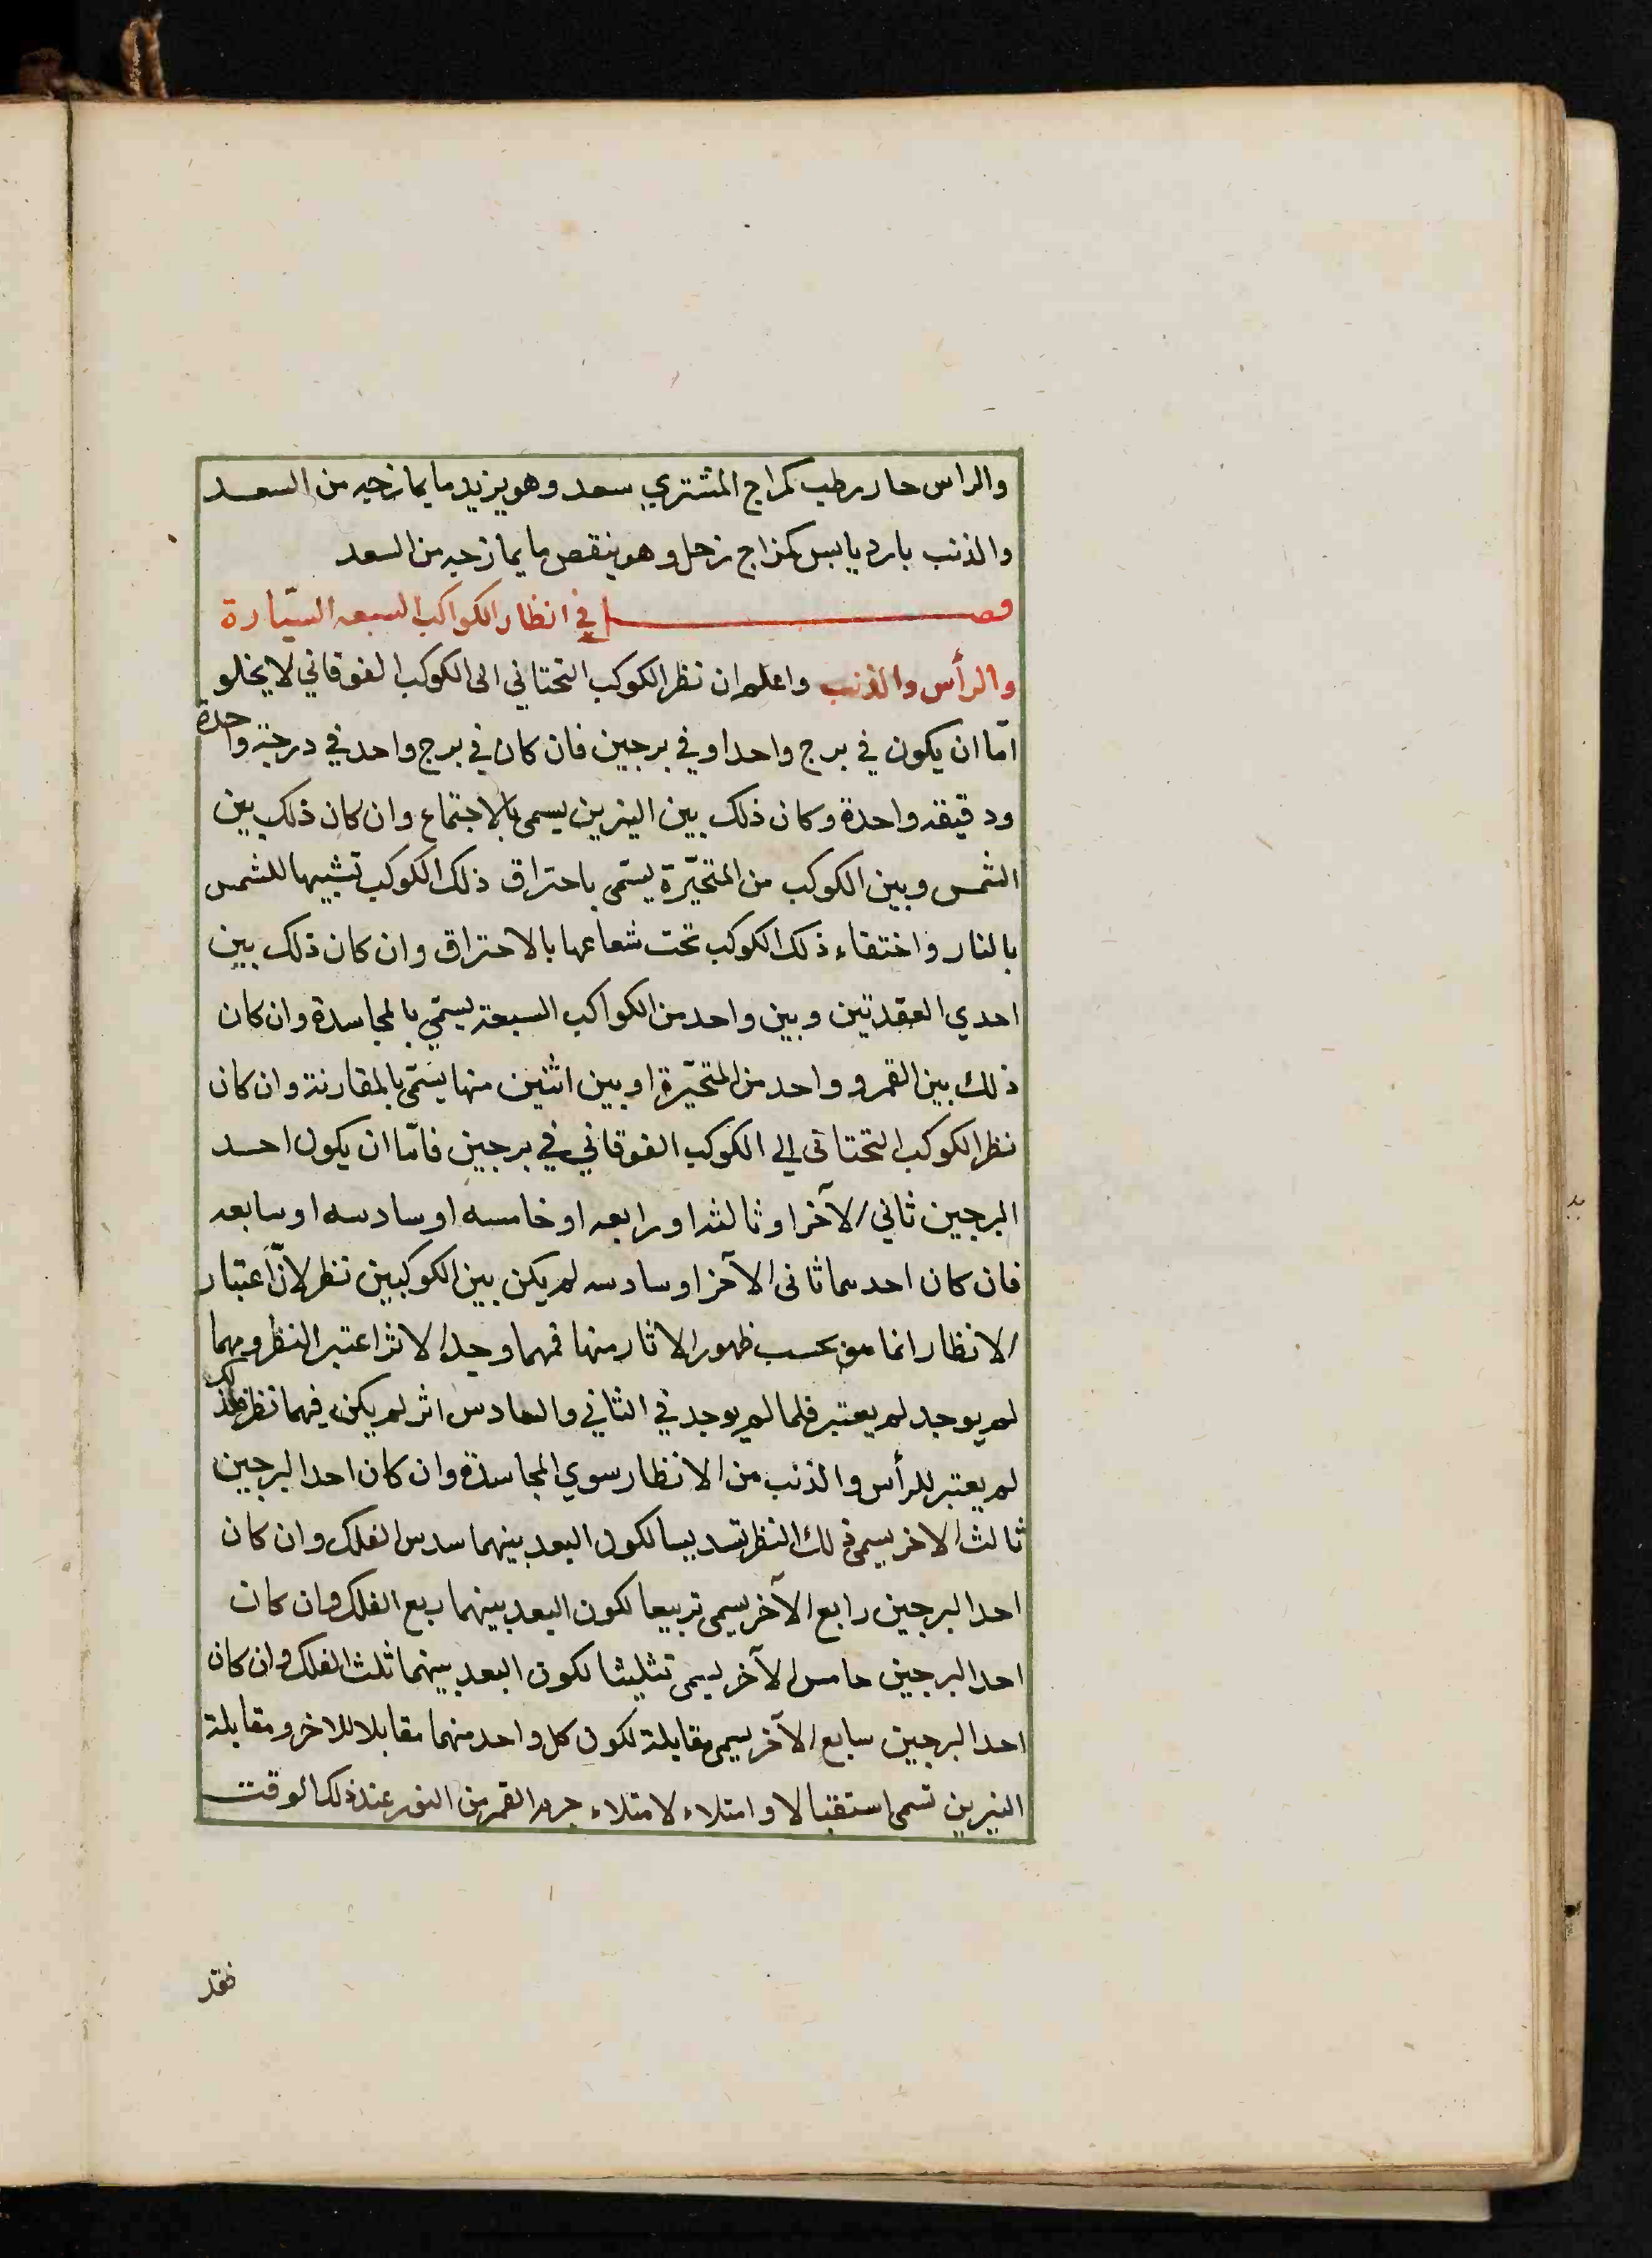 والراس حار رطب كمزاج المشتري سعد وهو يزيد ما يمازجه من السعد
والذنب بارد يابس كمزاج زحل وهو ينقص ما يمازجه من السعد
فصل في انظار الكواكب السبعه السيّارة
والرأس والذنب واعلم ان نظر الكوكب التحتاني الى الكوكب الفوقاني لا يخلو
امّا ان يكون في برج واحد او في برجين فان كان في برج واحد في درجة واحدة
ودقيقة واحدة وكان ذلك بين النيرين يسمى بالاجتماع وان كان ذلك بين
الشمس وبين الكوكب من المتحيّرة يسمّى باحتراق ذلك الكوكب تشبيها للشمس
بالنار واختفاء ذلك الكوكب تحت شعاعها بالاحتراق وان كان ذلك بين
احدي العقدتين وبين واحد من الكواكب السبعة يسمّي بالمجاسدة وان كان
ذلك بين القمر وواحد من المتحيّرة او بين اثنين منها يسمّى بالمقارنة وان كان
نظر الكوكب التحتاني إلي الكوكب الفوقاني في برجين فامّا ان يكون احد
البرجين ثاني الآخر او ثالثه او رابعه او خامسه او سادسه او سابعه
فان كان احدهما ثاني الآخر او سادسه لم يكن بين الكوكبين نظر لانّ اعتبار
الانظار انما هو بحسب ظهور الاثار منها فمهما وجد الاثر اعتبر النظر ومهما
لم يوجد لم يعتبر فلما لم يوجد في الثاني والسادس اثر لم يكن فيهما نظر فلذلك
لم يعتبر للرأس والذنب من الانظار سوي المجاسدة وان كان احد البرجين
ثالث الاخر يسمى ذلك النظر تسديسا لكون البعد بينهما سدس الفلك وان كان
احد البرجين رابع الآخر يسمى تربيعا لكون البعد بينهما ربع الفلك وان كان
احد البرجين خامس الآخر يسمى تثليثا لكون البعد بينهما ثلث الفلك وان كان
احد البرجين سابع الآخر يسمى مقابلة لكون كل واحد منهما مقابلا للاخر ومقابلة
النيرين تسمى استقبالا وامتلاء لامتلاء جرم القمر من النور عند ذلك الوقت
فقد